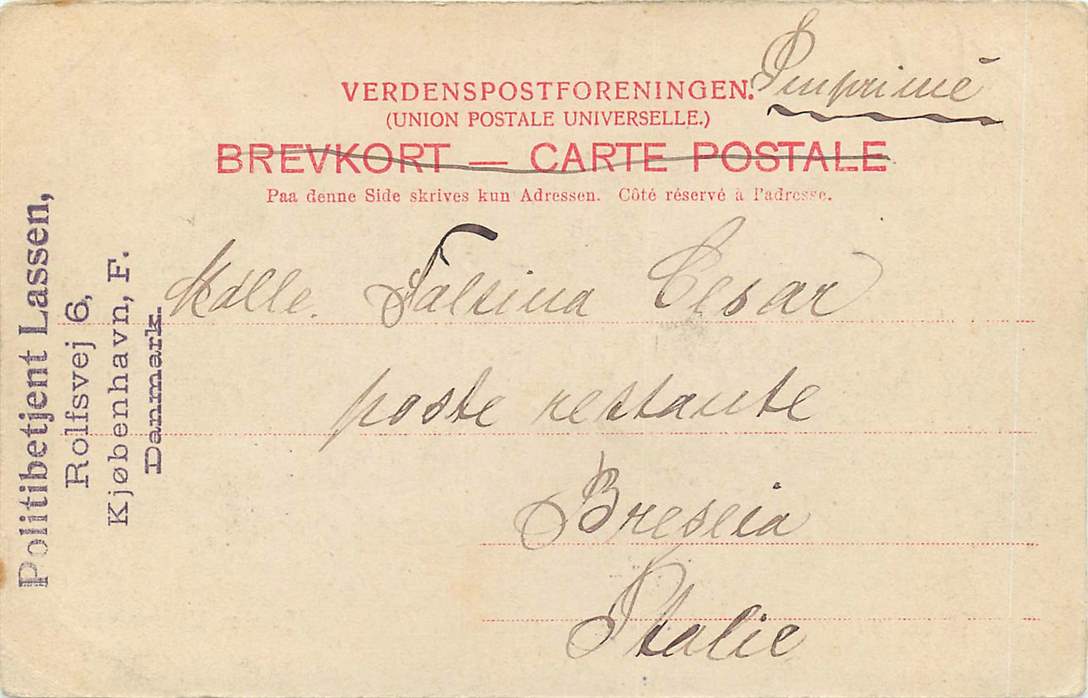 Imprimé
VERDENSPOSTFORENINGEN.
(UNION POSTALE UNIVERSELLE.)
BREVKORT — CARTE POSTALE
Paa denne Side skrives kun Adressen. Côté réservé à l'adresse.
Politibetjent Lassen,
Rolfsvej 6,
Kjøbenhavn, F.
Danmark.
Cesar
poste restante
Brescia
Italie